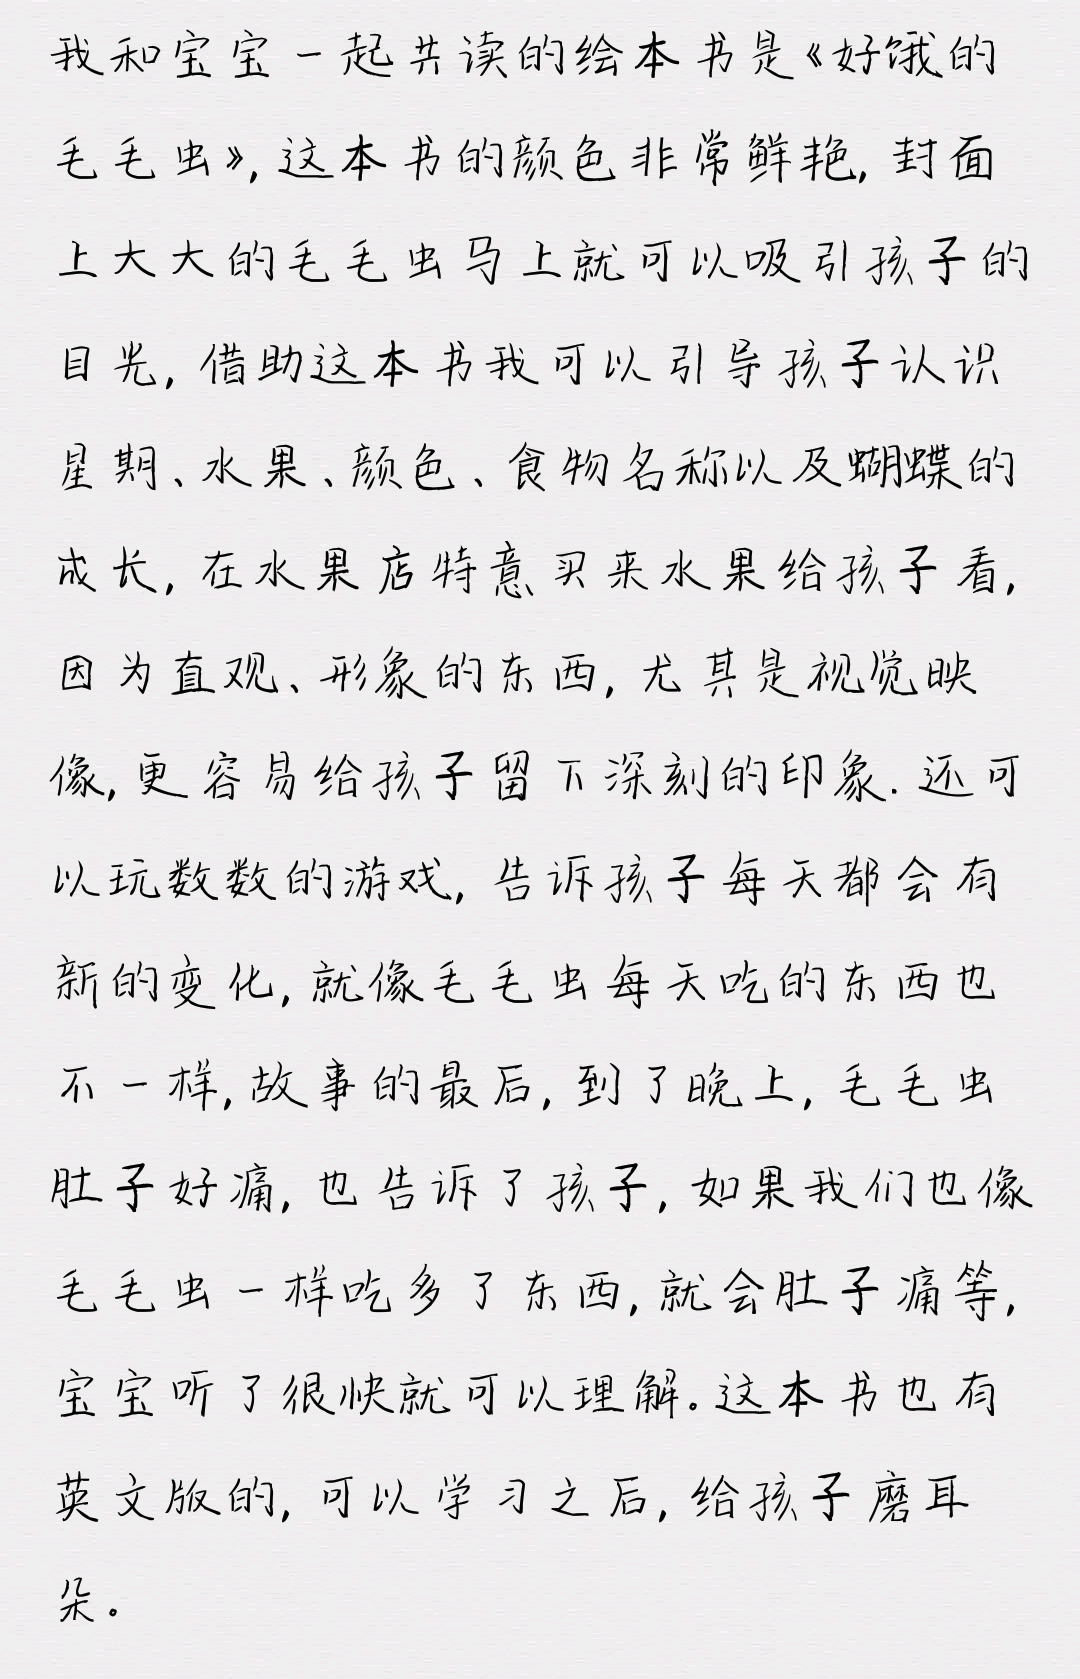 我和宝宝一起共读的绘本书是《好饿的
毛毛虫》,这本书的颜色非常鲜艳,封面
上大大的毛毛虫马上就可以吸引孩子的
目光,借助这本书我可以引导孩子认识
星期、水果、颜色、食物名称以及蝴蝶的
成长,在水果店特意买来水果给孩子看,
因为直观、形象的东西,尤其是视觉映
像,更容易给孩子留下深刻的印象.还可
以玩数数的游戏,告诉孩子每天都会有
新的变化,就像毛毛虫每天吃的东西也
不一样,故事的最后,到了晚上,毛毛虫
肚子好痛,也告诉了孩子,如果我们也像
毛毛虫一样吃多了东西,就会肚子痛等,
宝宝听了很快就可以理解。这本书也有
英文版的,可以学习之后,给孩子磨耳
朵。